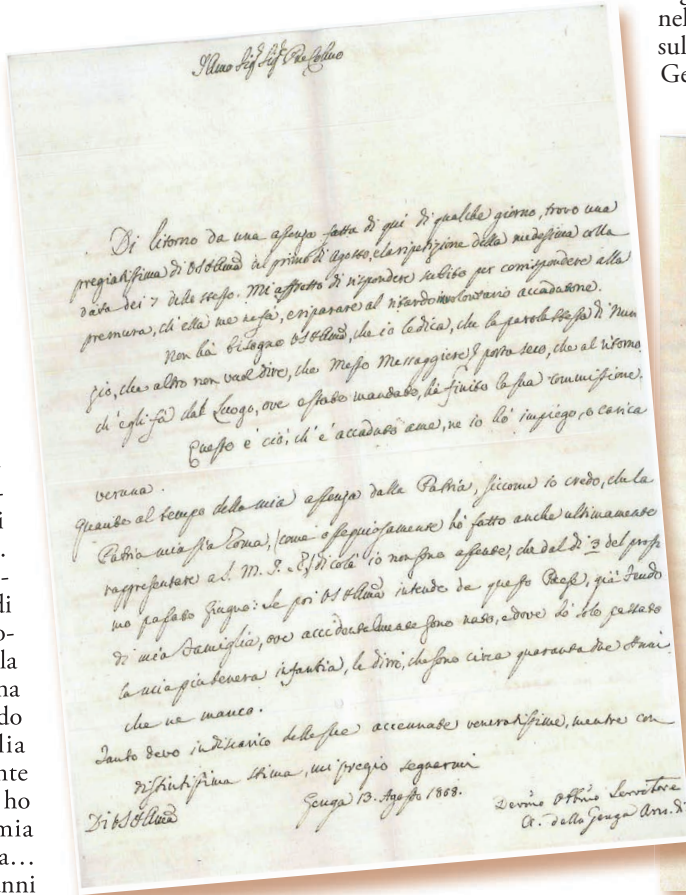 nel
sul
Ge
Illmo Sigr Sigr Pne Colmo
Di ritorno da una assenza fatta di qui di qualche giorno, trovo una
pregiatissima di VS Illma del primo di Agosto, e la ripetizione della medesima colla
data dei 7 dello stesso. Mi affretto di rispondere subito per corrispondere alla
premura, ch'ella me ne fà, e riparare al ritardo involontario accadutone.
Non hà bisogno VS Illma, che io le dica, che la parola stessa di Nun
zio, che altro non vuol dire, che Messo Messaggiere, porta seco, che al ritorno
ch'egli fà dal Luogo, ove è stato mandato, hà finito la sua commissione.
Questo è ciò, ch'è accaduto a me, ne io hò impiego, o carica
veruna.
Quanto al tempo della mia assenza dalla Patria, siccome io credo, che la
Patria mia sia Roma, (come ossequiosamente hò fatto anche ultimamente
rappresentare a S. M. I. e R.) di colà io non sono assente, che dal dì 3 del pross
mo passato Giugno: se poi VS Illma intende da questo Paese, già Feudo
di mia Famiglia, ove accidentalmente sono nato, e dove hò solo passato
la mia più tenera infanzia, le dirò, che sono circa quaranta due Anni
che ne manco.
Tanto devo in discarico delle sue accennate veneratissime, mentre con
distintissima stima, mi pregio segnarmi
Di VS Illma
Genga 13. Agosto 1808.
Devmo Obbmo Servitore
A. della Genga Arciv. di
-
i
.
-
di
o-
la
na
do
lia
nte
ho
mia
a…
nni